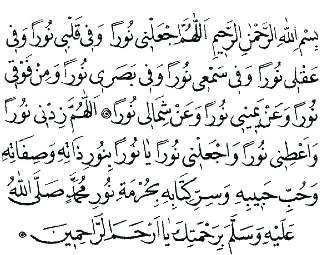 بِسْمِ اللهِ الرَّحْمٰنِ الرَّحِيمِ اَللّٰهُمَّ اجْعَلْنِى نُورًا وَفِى قَلْبِى نُورًا وَفِى
عَقْلِى نُورًا وَفِى سَمْعِى نُورًا وَفِى بَصَرِى نُورًا وَمِنْ فَوْقِى
نُورًا وَعَنْ يَمِينِى نُورًا وَعَنْ شِمَالِى نُورًا ۞ اَللّٰهُمَّ زِدْنِى نُورًا
وَاعْطِنِى نُورًا وَاجْعَلْنِى نُورًا يَا نُورًا بِنُورِ ذَاتِهِ وَصِفَاتِهِ
وَحُبِّ حَبِيبِهِ وَسِرِّ كِتَابِهِ بِحُرْمَةِ نُورِ مُحَمَّدٍ صَلَّى اللهُ
عَلَيْهِ وَسَلَّمَ بِرَحْمَتِكَ يَا اَرْحَمَ الرَّاحِمِينَ ۞